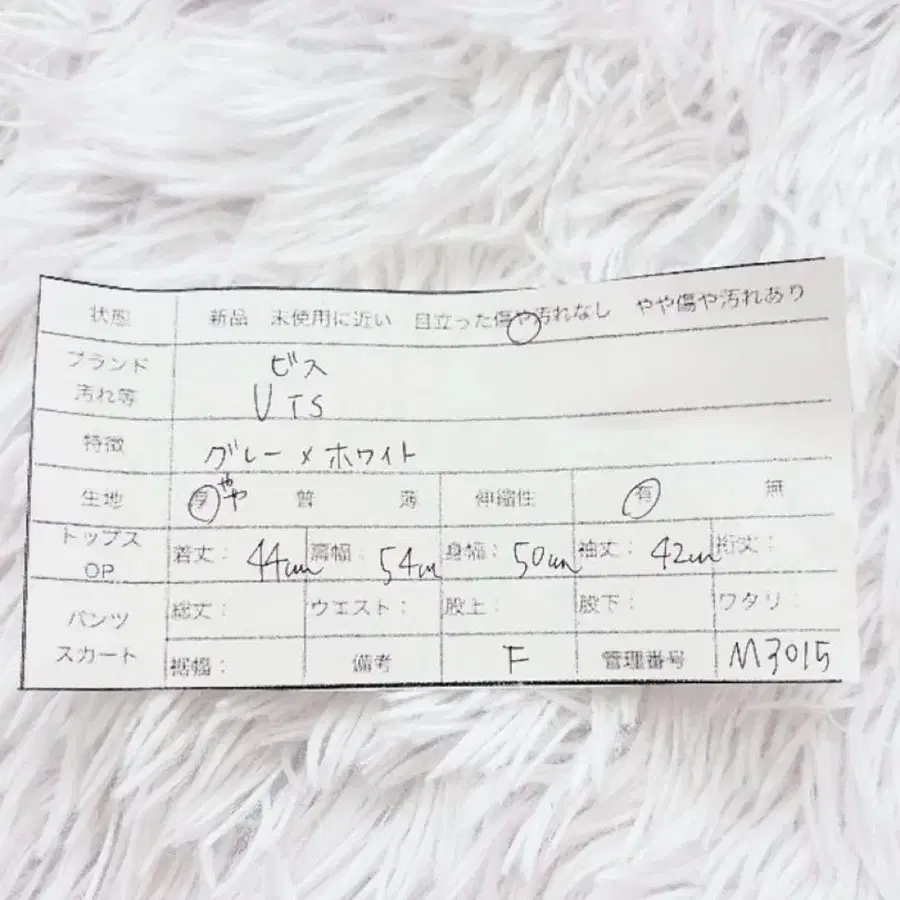 状態 新品 未使用に近い 目立った傷や汚れなし やや傷や汚れあり
ブランド ビス
汚れ等 VIS
特徴 グレー×ホワイト
生地 厚 やや 普 薄 伸縮性 有 無
トップス OP 着丈: 44cm 肩幅: 54cm 身幅: 50cm 袖丈: 42cm 裄丈:
パンツ 総丈: ウエスト: 股上: 股下: ワタリ:
スカート 裾幅: 備考 F 管理番号 M3015